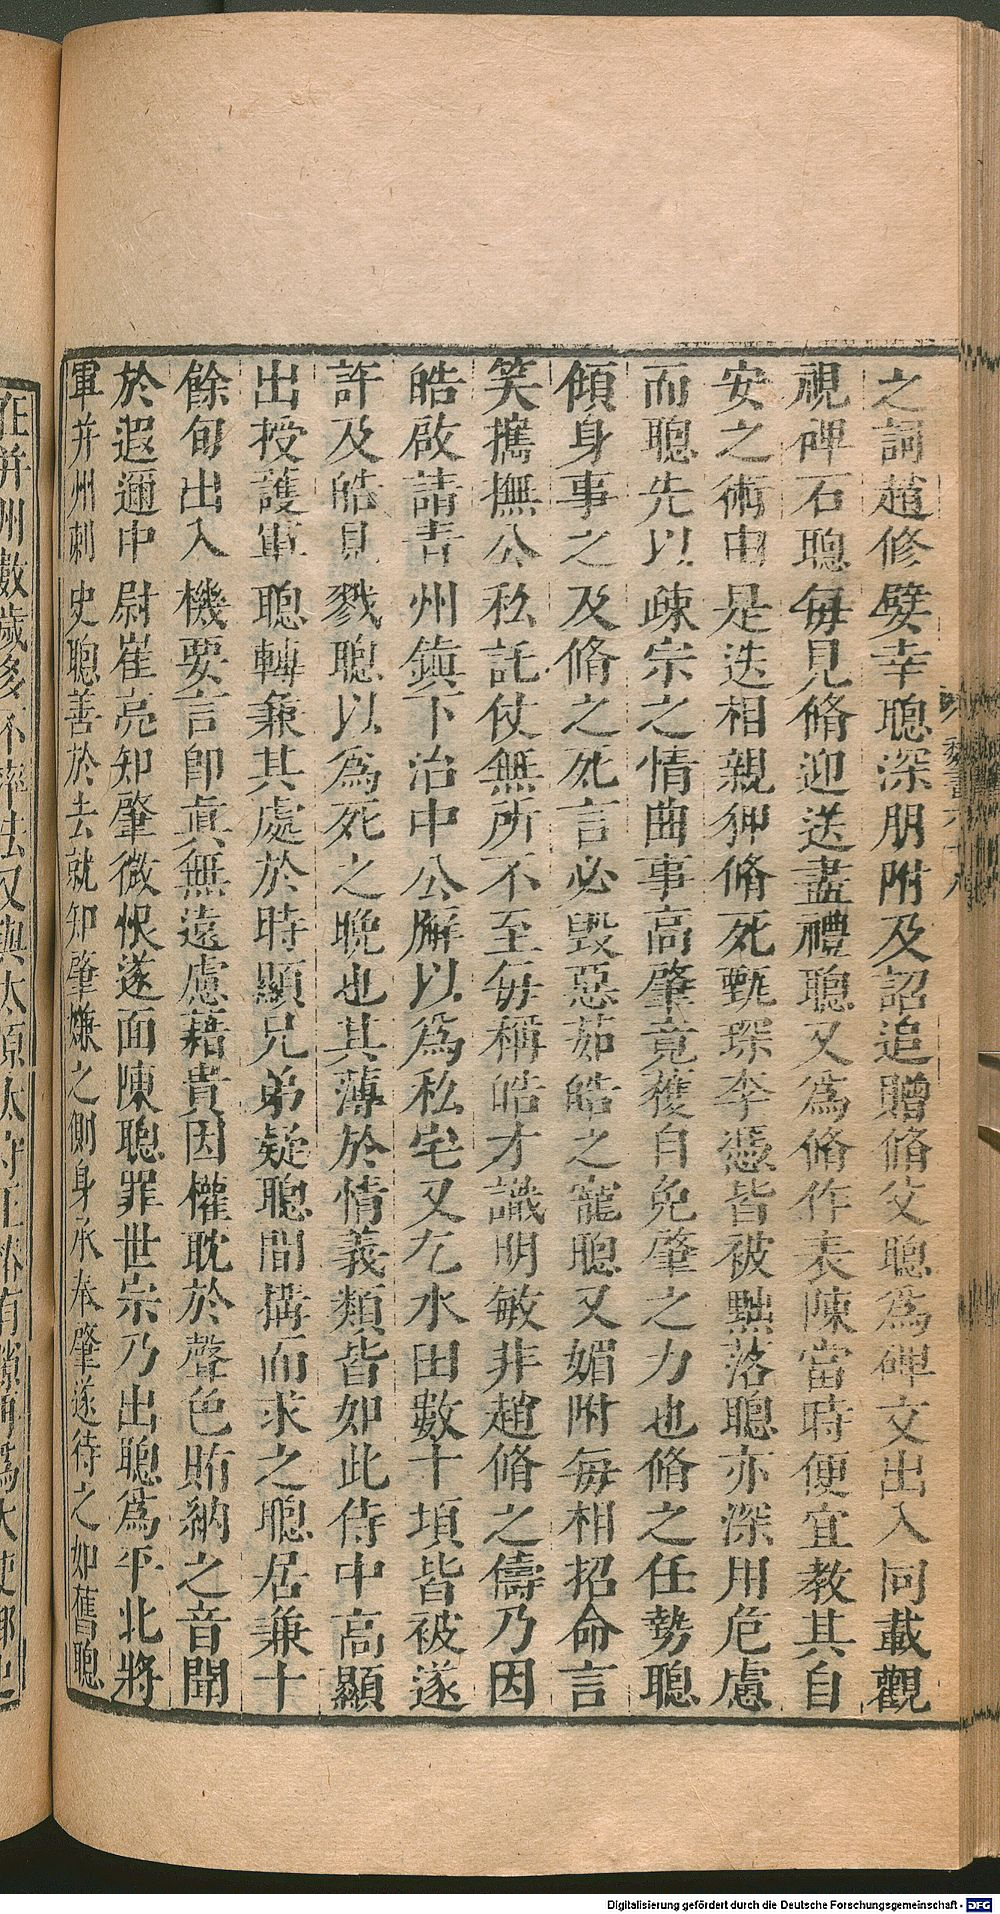 之詞趙修嬖幸聰深朋附及詔追贈脩父聰爲碑文出入同載觀
視碑石聰每見脩迎送盡禮聰又爲脩作表陳當時便宜教其自
安之術由是迭相親狎脩死甄琛李憑皆被黜落聰亦深用危慮
而聰先以疎宗之情曲事高肇竟獲自免肇之力也脩之任勢聰
傾身事之及脩之死言必毀惡茹皓之寵聰又媚附每相招命言
笑攜撫公私託仗無所不至每稱皓才識明敏非趙脩之儔乃因
皓啟請青州鎮下治中公廨以爲私宅又乞水田數十頃皆被遂
許及皓見戮聰以爲死之晚也其薄於情義類皆如此侍中高顯
出授護軍聰轉兼其處於時顯兄弟疑聰間搆而求之聰居兼十
餘旬出入機要言即眞無遠慮藉貴因權耽於聲色賄納之音聞
於遐邇中尉崔亮知肇微恨遂面陳聰罪世宗乃出聰爲平北將
軍并州刺史聰善於去就知肇嫌之側身承奉肇遂待之如舊聰
在并州數歲多不率法又與太原太守王椿有隙再爲大使
魏書六十八
Digitalisierung gefördert durch die Deutsche Forschungsgemeinschaft - DFG